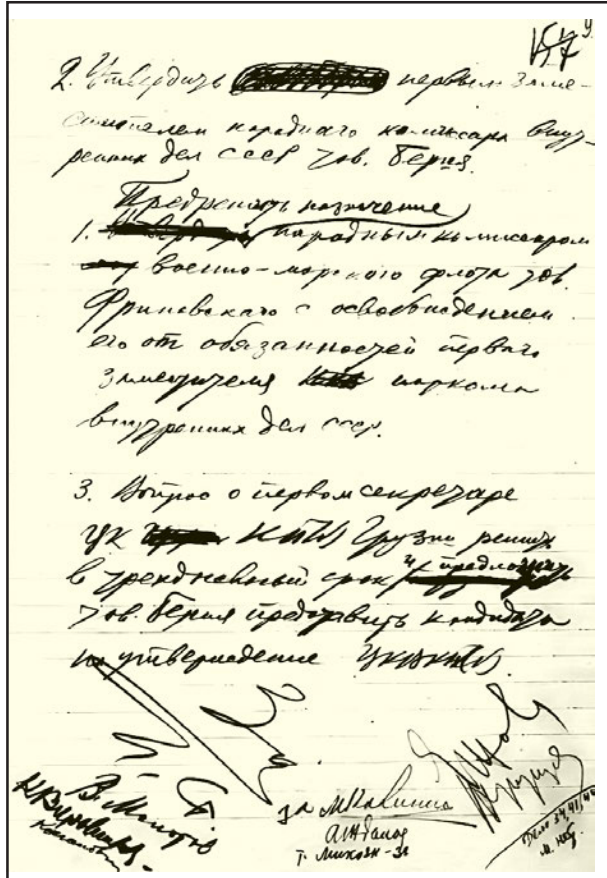 2. Утвердить первым заме-
стителем народнаго комиссара внут-
ренних дел СССР тов. Берия.
Предрешить назначение
1. народным комиссаром
военно-морского флота тов.
Фриновскаго с освобождением
его от обязанностей перваго
заместителя наркома
внутренних дел СССР.
3. Вопрос о первом секретаре
ЦК КП(б) Грузии решить
в трехдневный срок и предложить
тов. Берия представить кандидата
на утверждение ЦК ВКП(б).
В. Молотов
К Ворошилов
Каганович
за
М Калинин
АЖданов
т. Микоян - за